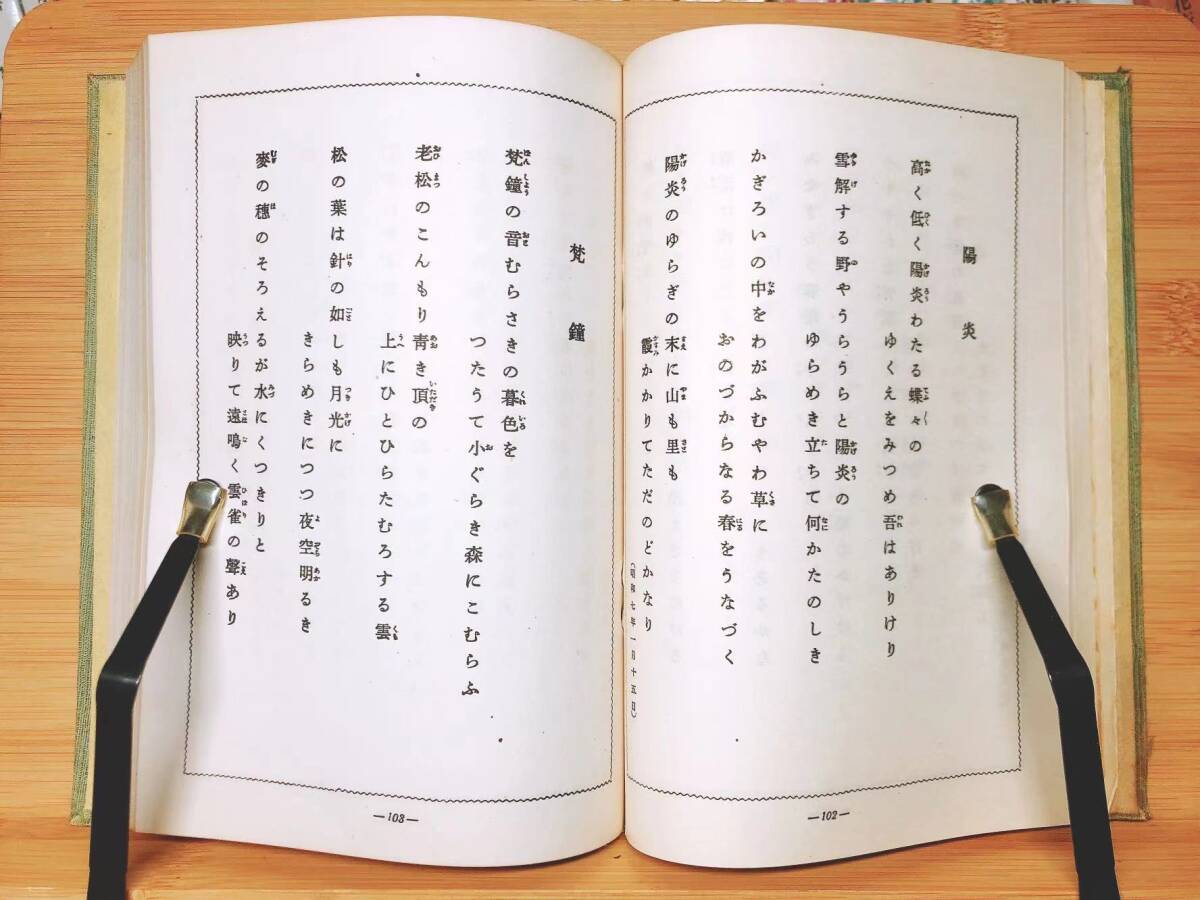 陽炎
高く低く陽炎わたる蝶々の
ゆくえをみつめ吾はありけり
雪解する野やうらうらと陽炎の
ゆらめき立ちて何かたのしき
かぎろいの中をわがふむやわ草に
おのづからなる春をうなづく
陽炎のゆらぎの末に山も里も
霞かかりてただのどかなり
(昭和七年一月十五日)
—102—
梵鐘
梵鐘の音むらさきの暮色を
つたうて小ぐらき森にこむらふ
老松のこんもり青き頂の
上にひとひらたむろする雲
松の葉は針の如しも月光に
きらめきにつつ夜空明るき
麥の穗のそろえるが水にくつきりと
映りて遠鳴く雲雀の聲あり
—103—